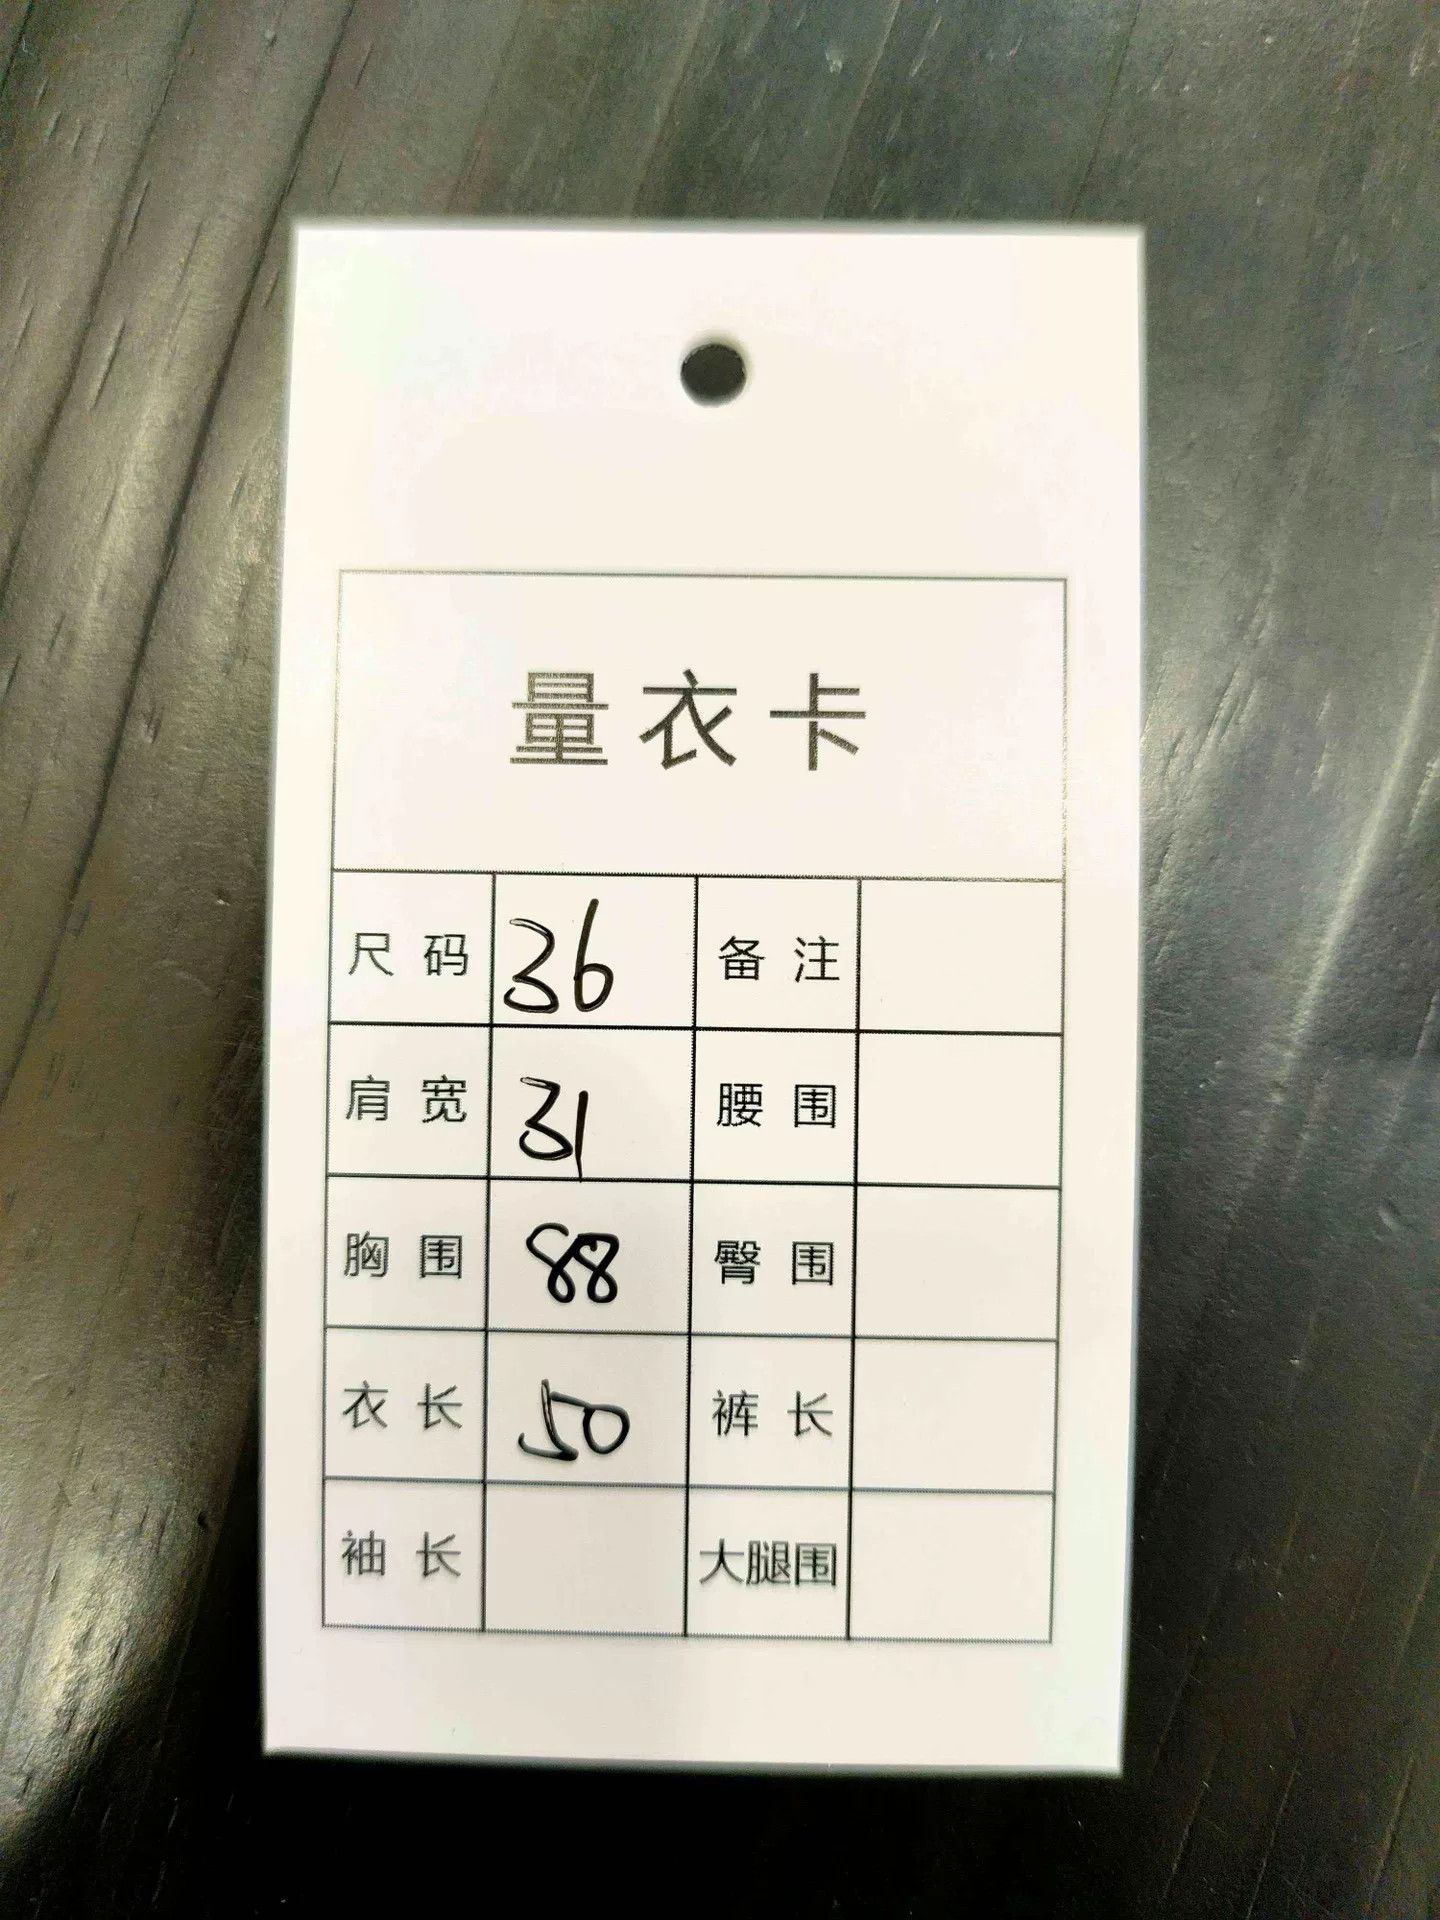 量衣卡
尺码 36 备注
肩宽 31 腰围
胸围 88 臀围
衣长 50 裤长
袖长 大腿围